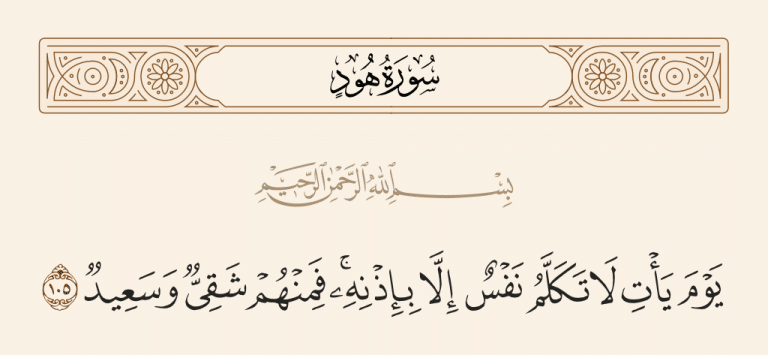 سُورَةُ هُودٍ
بِسْمِ ٱللَّهِ ٱلرَّحْمَٰنِ ٱلرَّحِيمِ
يَوْمَ يَأْتِ لَا تَكَلَّمُ نَفْسٌ إِلَّا بِإِذْنِهِۦۚ فَمِنْهُمْ شَقِىٌّ وَسَعِيدٌ ١٠٥